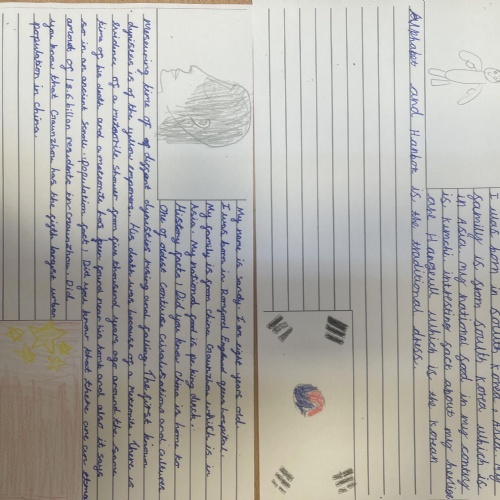 I was born in south Korea Asia my
familly is from south Korea which is
in Asia my national food in my contry
is Kimchi intresting fact about my
are Hangeul which is the Korean
Alphabet and Hanbok is the traditional dress.
My name is sandy I am eight years old
I was born in Romford England hospital.
My family is from china Guanzhou which is in
Asia. My national food is pe king duck.
History facts: Did you know China is home to
One of oldest contiues civalisations and cultures
Measuring time of diffrent dynisties rising and falling. The first known
dynisties is of the yellow emporers. His death was because of a Meteorite. There is
evidence of a meteorite shower from five thousand years ago around the same
time of his death and a meteorite has been found near his tomb and also it says
so in an ancient scroll. population fact: Did you know that there are an
amount of 18.6 billon residents in Guanzhou. Did
you know that Guanzhou has the fifth largest urban
population in China.